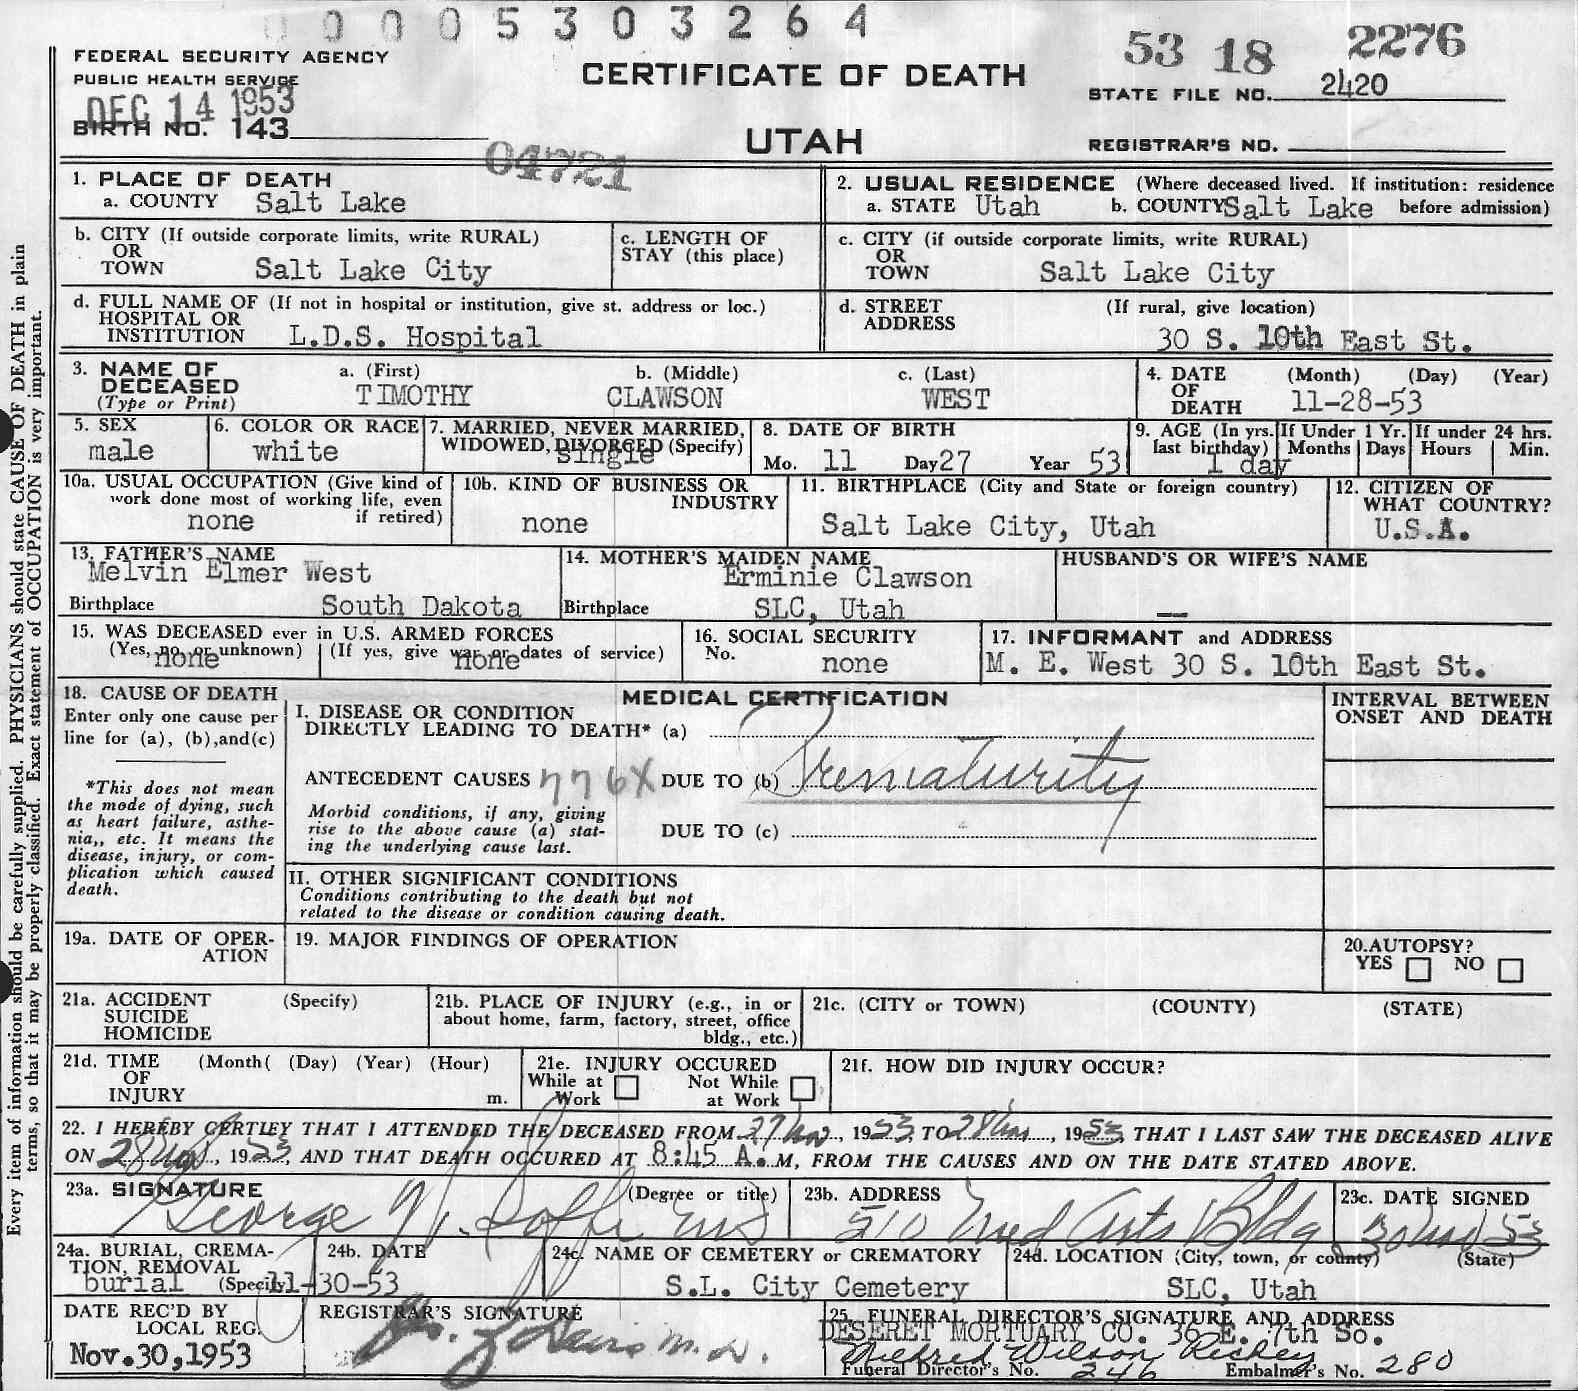 0 0 0 5 3 0 3 2 6 4
FEDERAL SECURITY AGENCY
PUBLIC HEALTH SERVICE
DEC 14 1953
BIRTH NO. 143
CERTIFICATE OF DEATH
UTAH
53 18 2276
STATE FILE NO. 2420
REGISTRAR'S NO.
04721
1. PLACE OF DEATH
a. COUNTY Salt Lake
2. USUAL RESIDENCE (Where deceased lived. If institution: residence
a. STATE Utah b. COUNTY Salt Lake before admission)
b. CITY (If outside corporate limits, write RURAL)
OR
TOWN Salt Lake City
c. LENGTH OF
STAY (this place)
c. CITY (if outside corporate limits, write RURAL)
OR
TOWN Salt Lake City
d. FULL NAME OF (If not in hospital or institution, give st. address or loc.)
HOSPITAL OR
INSTITUTION L.D.S. Hospital
d. STREET (If rural, give location)
ADDRESS
30 S. 10th East St.
3. NAME OF
DECEASED
(Type or Print)
a. (First) b. (Middle) c. (Last)
TIMOTHY CLAWSON WEST
4. DATE (Month) (Day) (Year)
OF
DEATH 11-28-53
5. SEX
male
6. COLOR OR RACE
white
7. MARRIED, NEVER MARRIED,
WIDOWED, DIVORCED (Specify)
single
8. DATE OF BIRTH
Mo. 11 Day 27 Year 53
9. AGE (In yrs.
last birthday)
1 day
If Under 1 Yr.
Months Days
If under 24 hrs.
Hours Min.
10a. USUAL OCCUPATION (Give kind of
work done most of working life, even
if retired)
none
10b. KIND OF BUSINESS OR
INDUSTRY
none
11. BIRTHPLACE (City and State or foreign country)
Salt Lake City, Utah
12. CITIZEN OF
WHAT COUNTRY?
U.S.A.
13. FATHER'S NAME
Melvin Elmer West
Birthplace South Dakota
14. MOTHER'S MAIDEN NAME
Erminie Clawson
Birthplace SLC, Utah
HUSBAND'S OR WIFE'S NAME
—
15. WAS DECEASED ever in U.S. ARMED FORCES
(Yes, no, or unknown) (If yes, give war or dates of service)
none none
16. SOCIAL SECURITY
No. none
17. INFORMANT and ADDRESS
M. E. West 30 S. 10th East St.
18. CAUSE OF DEATH
Enter only one cause per
line for (a), (b),and(c)
*This does not mean
the mode of dying, such
as heart failure, asthe-
nia,, etc. It means the
disease, injury, or com-
plication which caused
death.
MEDICAL CERTIFICATION
I. DISEASE OR CONDITION
DIRECTLY LEADING TO DEATH* (a)
ANTECEDENT CAUSES 776X DUE TO (b) Prematurity
Morbid conditions, if any, giving
rise to the above cause (a) stat-
ing the underlying cause last.
DUE TO (c)
INTERVAL BETWEEN
ONSET AND DEATH
II. OTHER SIGNIFICANT CONDITIONS
Conditions contributing to the death but not
related to the disease or condition causing death.
19a. DATE OF OPER-
ATION
19. MAJOR FINDINGS OF OPERATION
20.AUTOPSY?
YES NO
21a. ACCIDENT (Specify)
SUICIDE
HOMICIDE
21b. PLACE OF INJURY (e.g., in or
about home, farm, factory, street, office
bldg., etc.)
21c. (CITY or TOWN) (COUNTY) (STATE)
21d. TIME (Month( (Day) (Year) (Hour)
OF
INJURY m.
21e. INJURY OCCURED
While at Not While
Work at Work
21f. HOW DID INJURY OCCUR?
22. I HEREBY CERTLEY THAT I ATTENDED THE DECEASED FROM 27 Nov, 1953, TO 28 Nov, 1953, THAT I LAST SAW THE DECEASED ALIVE
ON 28 Nov, 1953, AND THAT DEATH OCCURED AT 8:45 A.M, FROM THE CAUSES AND ON THE DATE STATED ABOVE.
23a. SIGNATURE (Degree or title)
George MD
23b. ADDRESS
510 Med Arts Bldg
23c. DATE SIGNED
30 Nov 53
24a. BURIAL, CREMA-
TION, REMOVAL
burial (Specify)
24b. DATE
11-30-53
24c. NAME OF CEMETERY or CREMATORY
S.L. City Cemetery
24d. LOCATION (City, town, or county) (State)
SLC, Utah
DATE REC'D BY
LOCAL REG.
Nov.30,1953
REGISTRAR'S SIGNATURE
Davis M.D.
25. FUNERAL DIRECTOR'S SIGNATURE AND ADDRESS
DESERET MORTUARY CO. 36 E. 7th So.
Mildred Wilson Richey
Funeral Director's No. 246 Embalmer's No. 280
Every item of information should be carefully supplied. PHYSICIANS should state CAUSE OF DEATH in plain
terms, so that it may be properly classified. Exact statement of OCCUPATION is very important.